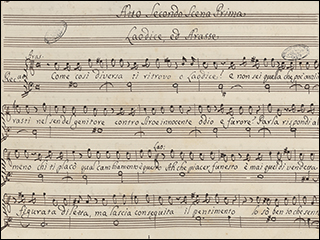 Atto Secondo Scena Prima
Laodice ed Arasse
Aras:
Come così diversa ti ritrovo o Laodice! e non sei quella che poi mos
trasti nel sen del genitore contro Siroe innocente odio e furore? Parla rispondi al
meno chi ti placò qual cambiamento è questo Ah che piacer funesto è mai quel di vendicata
Lao:
figurata di lessa, ma lascia conseguita il pentimento Io so ben io che sento